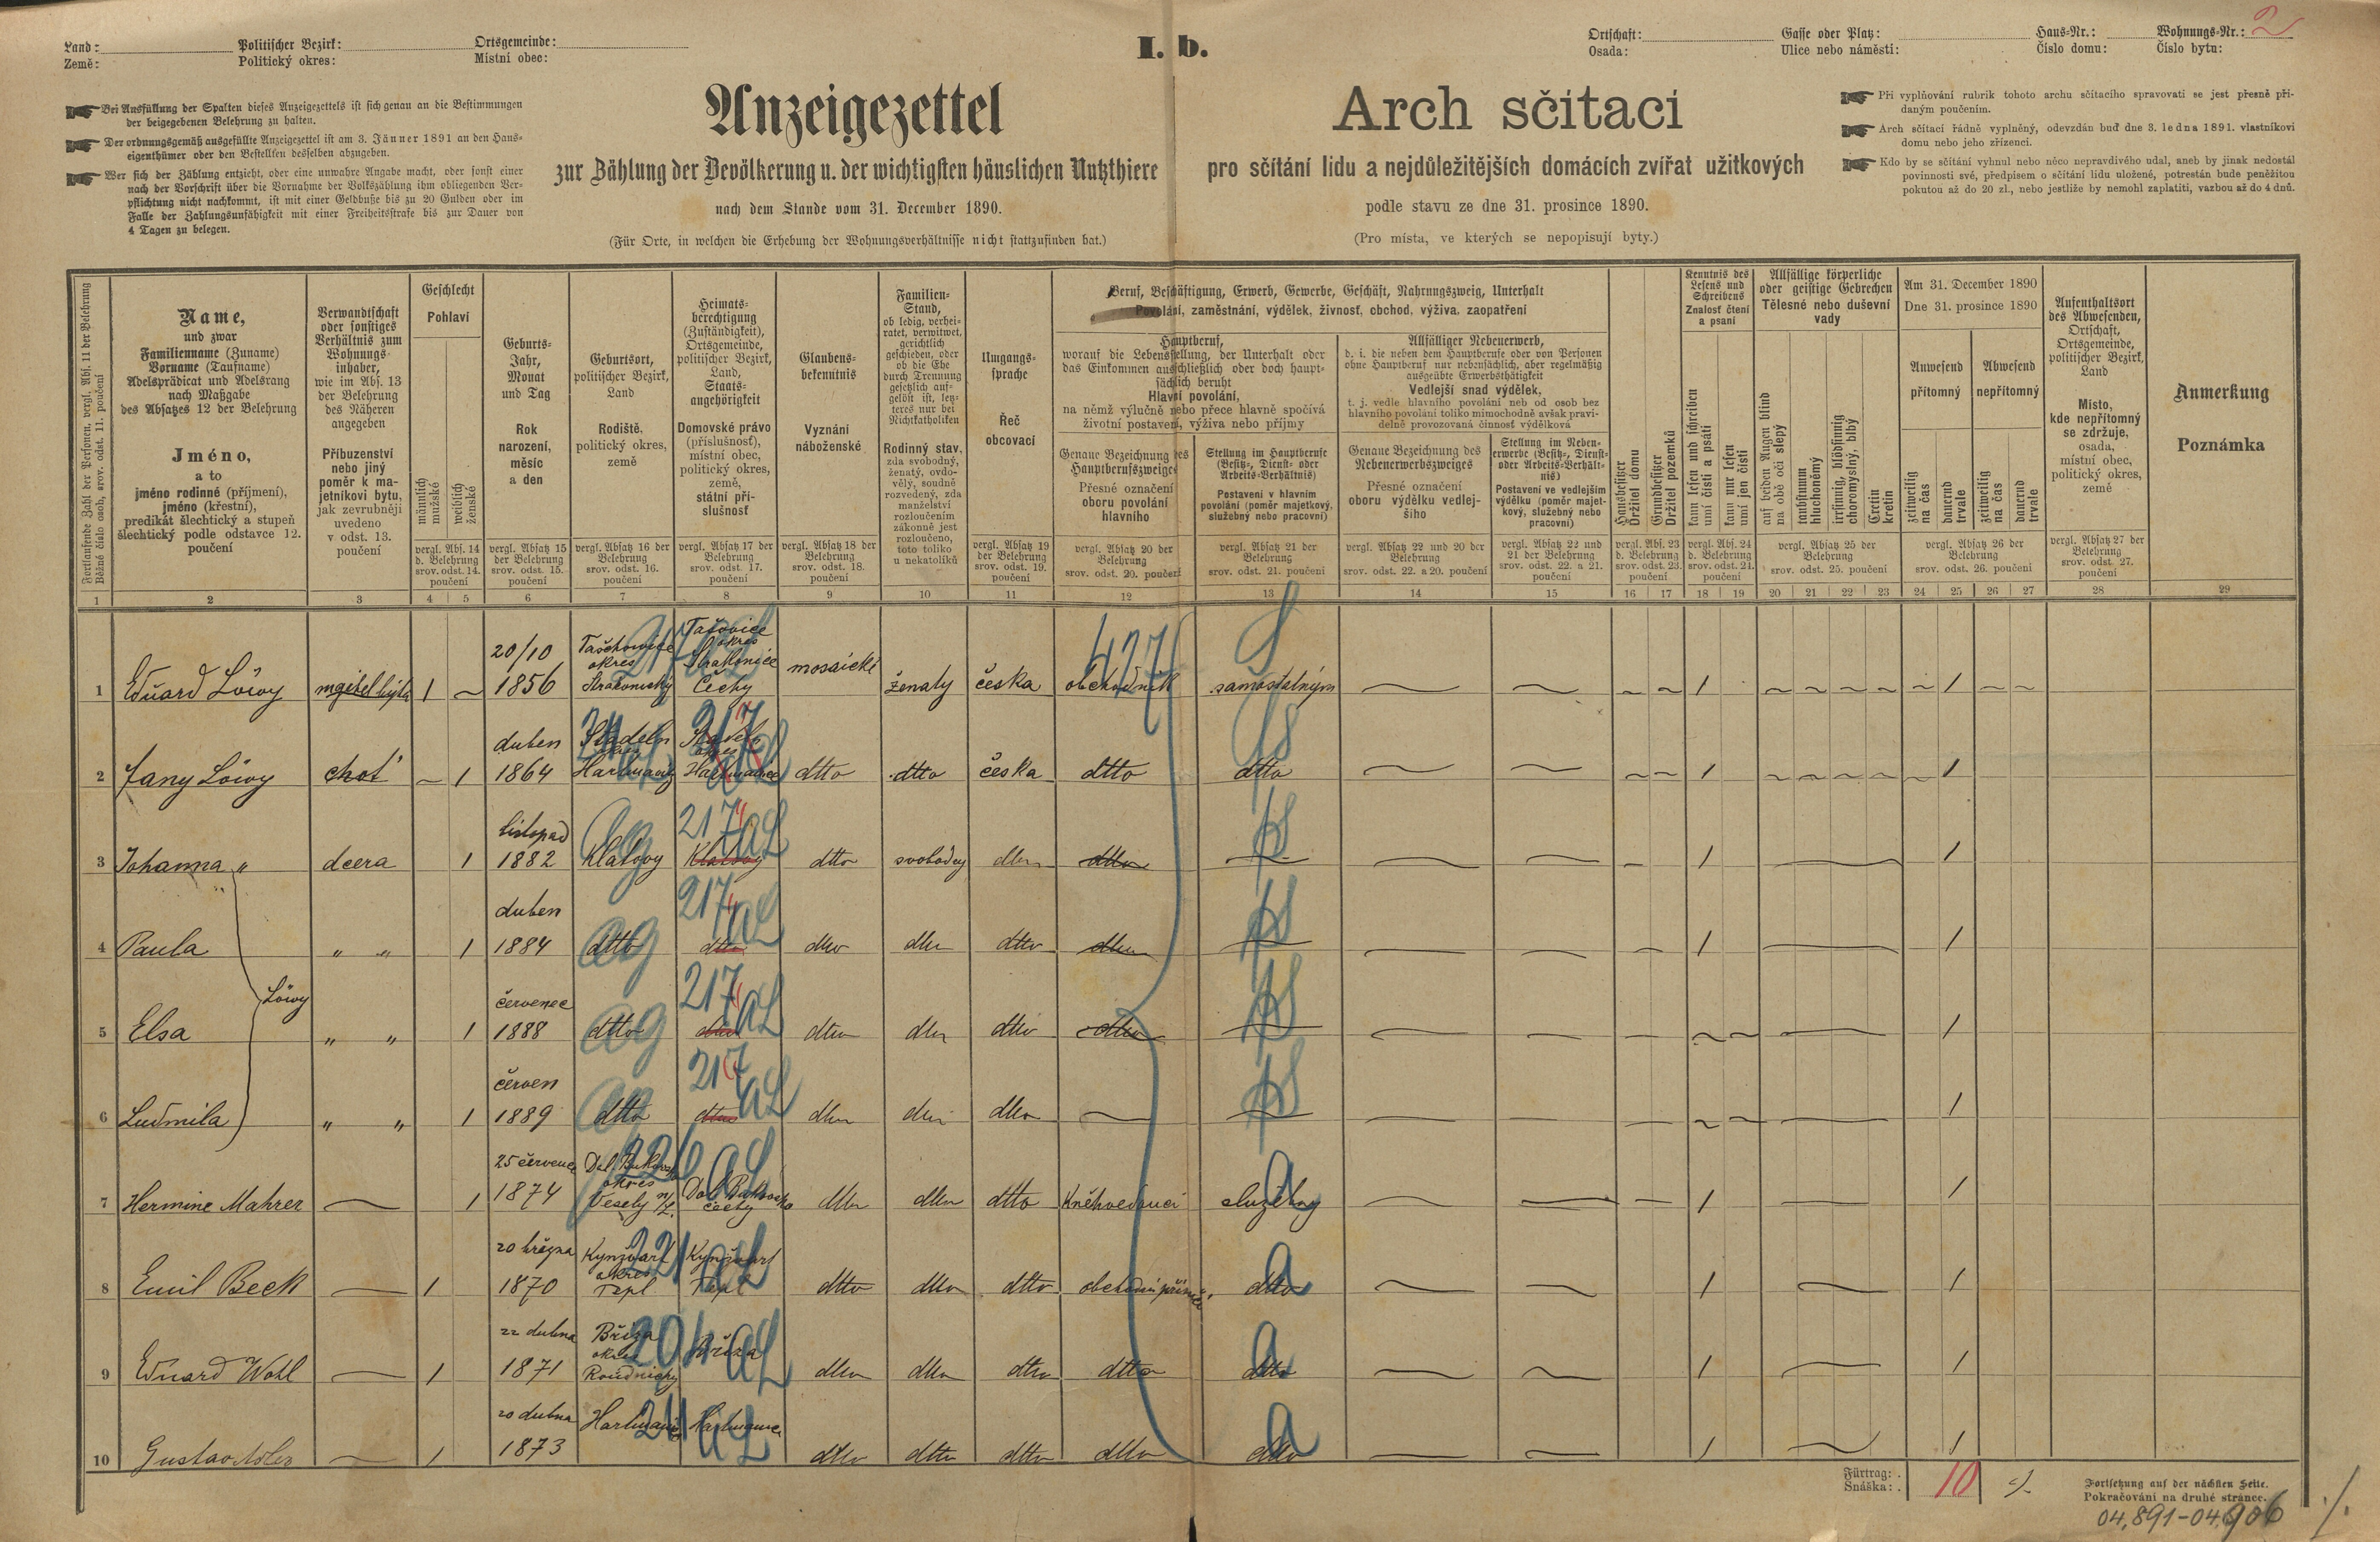 I. b.
Land:
Země:
Politischer Bezirk:
Politický okres:
Ortsgemeinde:
Místní obec:
Ortschaft:
Osada:
Gasse oder Platz:
Ulice nebo náměstí:
Haus-Nr.:
Číslo domu:
Wohnungs-Nr.: 2
Číslo bytu:
Bei Ausfüllung der Spalten dieses Anzeigezettels ist sich genau an die Bestimmungen
der beigegebenen Belehrung zu halten.
Der ordnungsgemäß ausgefüllte Anzeigezettel ist am 3. Jänner 1891 an den Haus-
eigenthümer oder den Bestellten desselben abzugeben.
Wer sich der Zählung entzieht, oder eine unwahre Angabe macht, oder sonst einer
nach der Vorschrift über die Vornahme der Volkszählung ihm obliegenden Ver-
pflichtung nicht nachkommt, ist mit einer Geldbuße bis zu 20 Gulden oder im
Falle der Zahlungsunfähigkeit mit einer Freiheitsstrafe bis zur Dauer von
4 Tagen zu belegen.
Anzeigezettel
zur Zählung der Bevölkerung u. der wichtigsten häuslichen Nutzthiere
nach dem Stande vom 31. December 1890.
(Für Orte, in welchen die Erhebung der Wohnungsverhältnisse nicht stattzufinden hat.)
Arch sčítací
pro sčítání lidu a nejdůležitějších domácích zvířat užitkových
podle stavu ze dne 31. prosince 1890.
(Pro místa, ve kterých se nepopisují byty.)
Při vyplňování rubrik tohoto archu sčítacího spravovati se jest přesně při-
daným poučením.
Arch sčítací řádně vyplněný, odevzdán buď dne 3. ledna 1891. vlastníkovi
domu nebo jeho zřízenci.
Kdo by se sčítání vyhnul nebo něco nepravdivého udal, aneb by jinak nedostál
povinnosti své, předpisem o sčítání lidu uložené, potrestán bude peněžitou
pokutou až do 20 zl., nebo jestliže by nemohl zaplatiti, vazbou až do 4 dnů.
Fortlaufende Zahl der Personen, vergl. Abs. 11 der Belehrung
Běžné číslo osob, srov. odst. 11. poučení
Name,
und zwar
Familienname (Zuname)
Vorname (Taufname)
Adelsprädicat und Adelsrang
nach Maßgabe
des Absatzes 12 der Belehrung
Jméno,
a to
jméno rodinné (příjmení),
jméno (křestní),
predikát šlechtický a stupeň
šlechtický podle odstavce 12.
poučení
Verwandtschaft
oder sonstiges
Verhältnis zum
Wohnungs-
inhaber,
wie im Abs. 13
der Belehrung
des Näheren
angegeben
Příbuzenství
nebo jiný
poměr k ma-
jetníkovi bytu,
jak zevrubněji
uvedeno
v odst. 13.
poučení
Geschlecht
Pohlaví
männlich
mužské
weiblich
ženské
vergl. Abs. 14
d. Belehrung
srov. odst. 14.
poučení
Geburts-
Jahr,
Monat
und Tag
Rok
narození,
měsíc
a den
vergl. Absatz 15
der Belehrung
srov. odst. 15.
poučení
Geburtsort,
politischer Bezirk,
Land
Rodiště,
politický okres,
země
vergl. Absatz 16 der
Belehrung
srov. odst. 16.
poučení
Heimats-
berechtigung
(Zuständigkeit),
Ortsgemeinde,
politischer Bezirk,
Land,
Staats-
angehörigkeit
Domovské právo
(příslušnost),
místní obec,
politický okres,
země,
státní pří-
slušnost
vergl. Absatz 17 der
Belehrung
srov. odst. 17.
poučení
Glaubens-
bekenntnis
Vyznání
náboženské
vergl. Absatz 18 der
Belehrung
srov. odst. 18.
poučení
Familien-
Stand,
ob ledig, verhei-
ratet, verwitwet,
gerichtlich
geschieden, oder
ob die Ehe
durch Trennung
gesetzlich auf-
gelöst ist, letz-
teres nur bei
Nichtkatholiken
Rodinný stav,
zda svobodný,
ženatý, ovdo-
vělý, soudně
rozvedený, zda
manželství
rozloučením
zákonně jest
rozloučeno,
toto toliko
u nekatolíků
Umgangs-
sprache
Řeč
obcovací
vergl. Absatz 19
der Belehrung
srov. odst. 19.
poučení
Beruf, Beschäftigung, Erwerb, Gewerbe, Geschäft, Nahrungszweig, Unterhalt
Povolání, zaměstnání, výdělek, živnost, obchod, výživa, zaopatření
Hauptberuf,
worauf die Lebensstellung, der Unterhalt oder
das Einkommen ausschließlich oder doch haupt-
sächlich beruht
Hlavní povolání,
na němž výlučně nebo přece hlavně spočívá
životní postavení, výživa nebo příjmy
Genaue Bezeichnung des
Hauptberufszweiges
Přesné označení
oboru povolání
hlavního
vergl. Absatz 20 der
Belehrung
srov. odst. 20. poučení
Stellung im Hauptberufe
(Besitz-, Dienst- oder
Arbeits-Verhältnis)
Postavení v hlavním
povolání (poměr majetkový,
služebný nebo pracovní)
vergl. Absatz 21 der
Belehrung
srov. odst. 21. poučení
Allfälliger Nebenerwerb,
d. i. die neben dem Hauptberufe oder von Personen
ohne Hauptberuf nur nebensächlich, aber regelmäßig
ausgeübte Erwerbsthätigkeit
Vedlejší snad výdělek,
t. j. vedle hlavního povolání neb od osob bez
hlavního povolání toliko mimochodně avšak pravi-
delně provozovaná činnost výdělková
Genaue Bezeichnung des
Nebenerwerbszweiges
Přesné označení
oboru výdělku vedlej-
šího
vergl. Absatz 22 und 20 der
Belehrung
srov. odst. 22. a 20. poučení
Stellung im Neben-
erwerbe (Besitz-, Dienst-
oder Arbeits-Verhält-
nis)
Postavení ve vedlejším
výdělku (poměr majet-
kový, služebný nebo
pracovní)
vergl. Absatz 22 und
21 der Belehrung
srov. odst. 22. a 21.
poučení
Hausbesitzer
Držitel domu
Grundbesitzer
Držitel pozemků
vergl. Abs. 23
d. Belehrung
srov. odst. 23.
poučení
Kenntnis des
Lesens und
Schreibens
Znalost čtení
a psaní
kann lesen und schreiben
umí čísti a psáti
kann nur lesen
umí jen čísti
vergl. Abs. 24
d. Belehrung
srov. odst. 24.
poučení
Allfällige körperliche
oder geistige Gebrechen
Tělesné nebo duševní
vady
auf beiden Augen blind
na obě oči slepý
taubstumm
hluchoněmý
irrsinnig, blödsinnig
choromyslný, blbý
Cretin
kretin
vergl. Absatz 25 der
Belehrung
srov. odst. 25. poučení
Am 31. December 1890
Dne 31. prosince 1890
Anwesend
přítomný
Abwesend
nepřítomný
zeitweilig
na čas
dauernd
trvale
zeitweilig
na čas
dauernd
trvale
vergl. Absatz 26 der
Belehrung
srov. odst. 26. poučení
Aufenthaltsort
des Abwesenden,
Ortschaft,
Ortsgemeinde,
politischer Bezirk,
Land
Místo,
kde nepřítomný
se zdržuje,
osada,
místní obec,
politický okres,
země
vergl. Absatz 27 der
Belehrung
srov. odst. 27.
poučení
Anmerkung
Poznámka
1 2 3 4 5 6 7 8 9 10 11 12 13 14 15 16 17 18 19 20 21 22 23 24 25 26 27 28 29
1 Eduard Löwy 1 20/10 1856 okres Strakonický Tašovice okres Strakonice Čechy mosaické ženatý česka obchodník samostatným 1 1
427 S
2 Fany Löwy choť 1 duben 1864 okres dtto dtto česka dtto dtto 1 1
217
3 Johanna " dcera 1 listopad 1882 Klatovy Klatovy dtto svobodny dtto dtto 1 1
217 aL
4 Paula " " 1 duben 1884 dtto dtto dtto dtto dtto dtto 1 1
217 aL
Löwy
5 Elsa " " 1 červenec 1888 dtto dtto dtto dtto dtto dtto 1
217 aL
6 Ludmila " " 1 červen 1889 dtto dtto dtto dtto dtto 1
217 aL
7 Hermine Mahrer 1 25 července 1874 Dol. Bukovsko okres Vesely n/L. Dol. Bukovsko Čechy dtto dtto dtto služebny 1 1
aL a
8 Emil Beck 1 20 března 1870 Kynžvart okres Tepl Kynžvart Tepl dtto dtto dtto dtto 1 1
221 aL a
9 Eduard Wohl 1 22 dubna 1871 Bříza okres Roudnický Bříza dtto dtto dtto dtto dtto 1 1
204 aL a
10 Gustav Adler 1 20 dubna 1873 dtto dtto dtto dtto dtto 1 1
aL a
Fürtrag: 10
Snáška:
Fortsetzung auf der nächsten Seite.
Pokračování na druhé stránce.
04,891-04,906